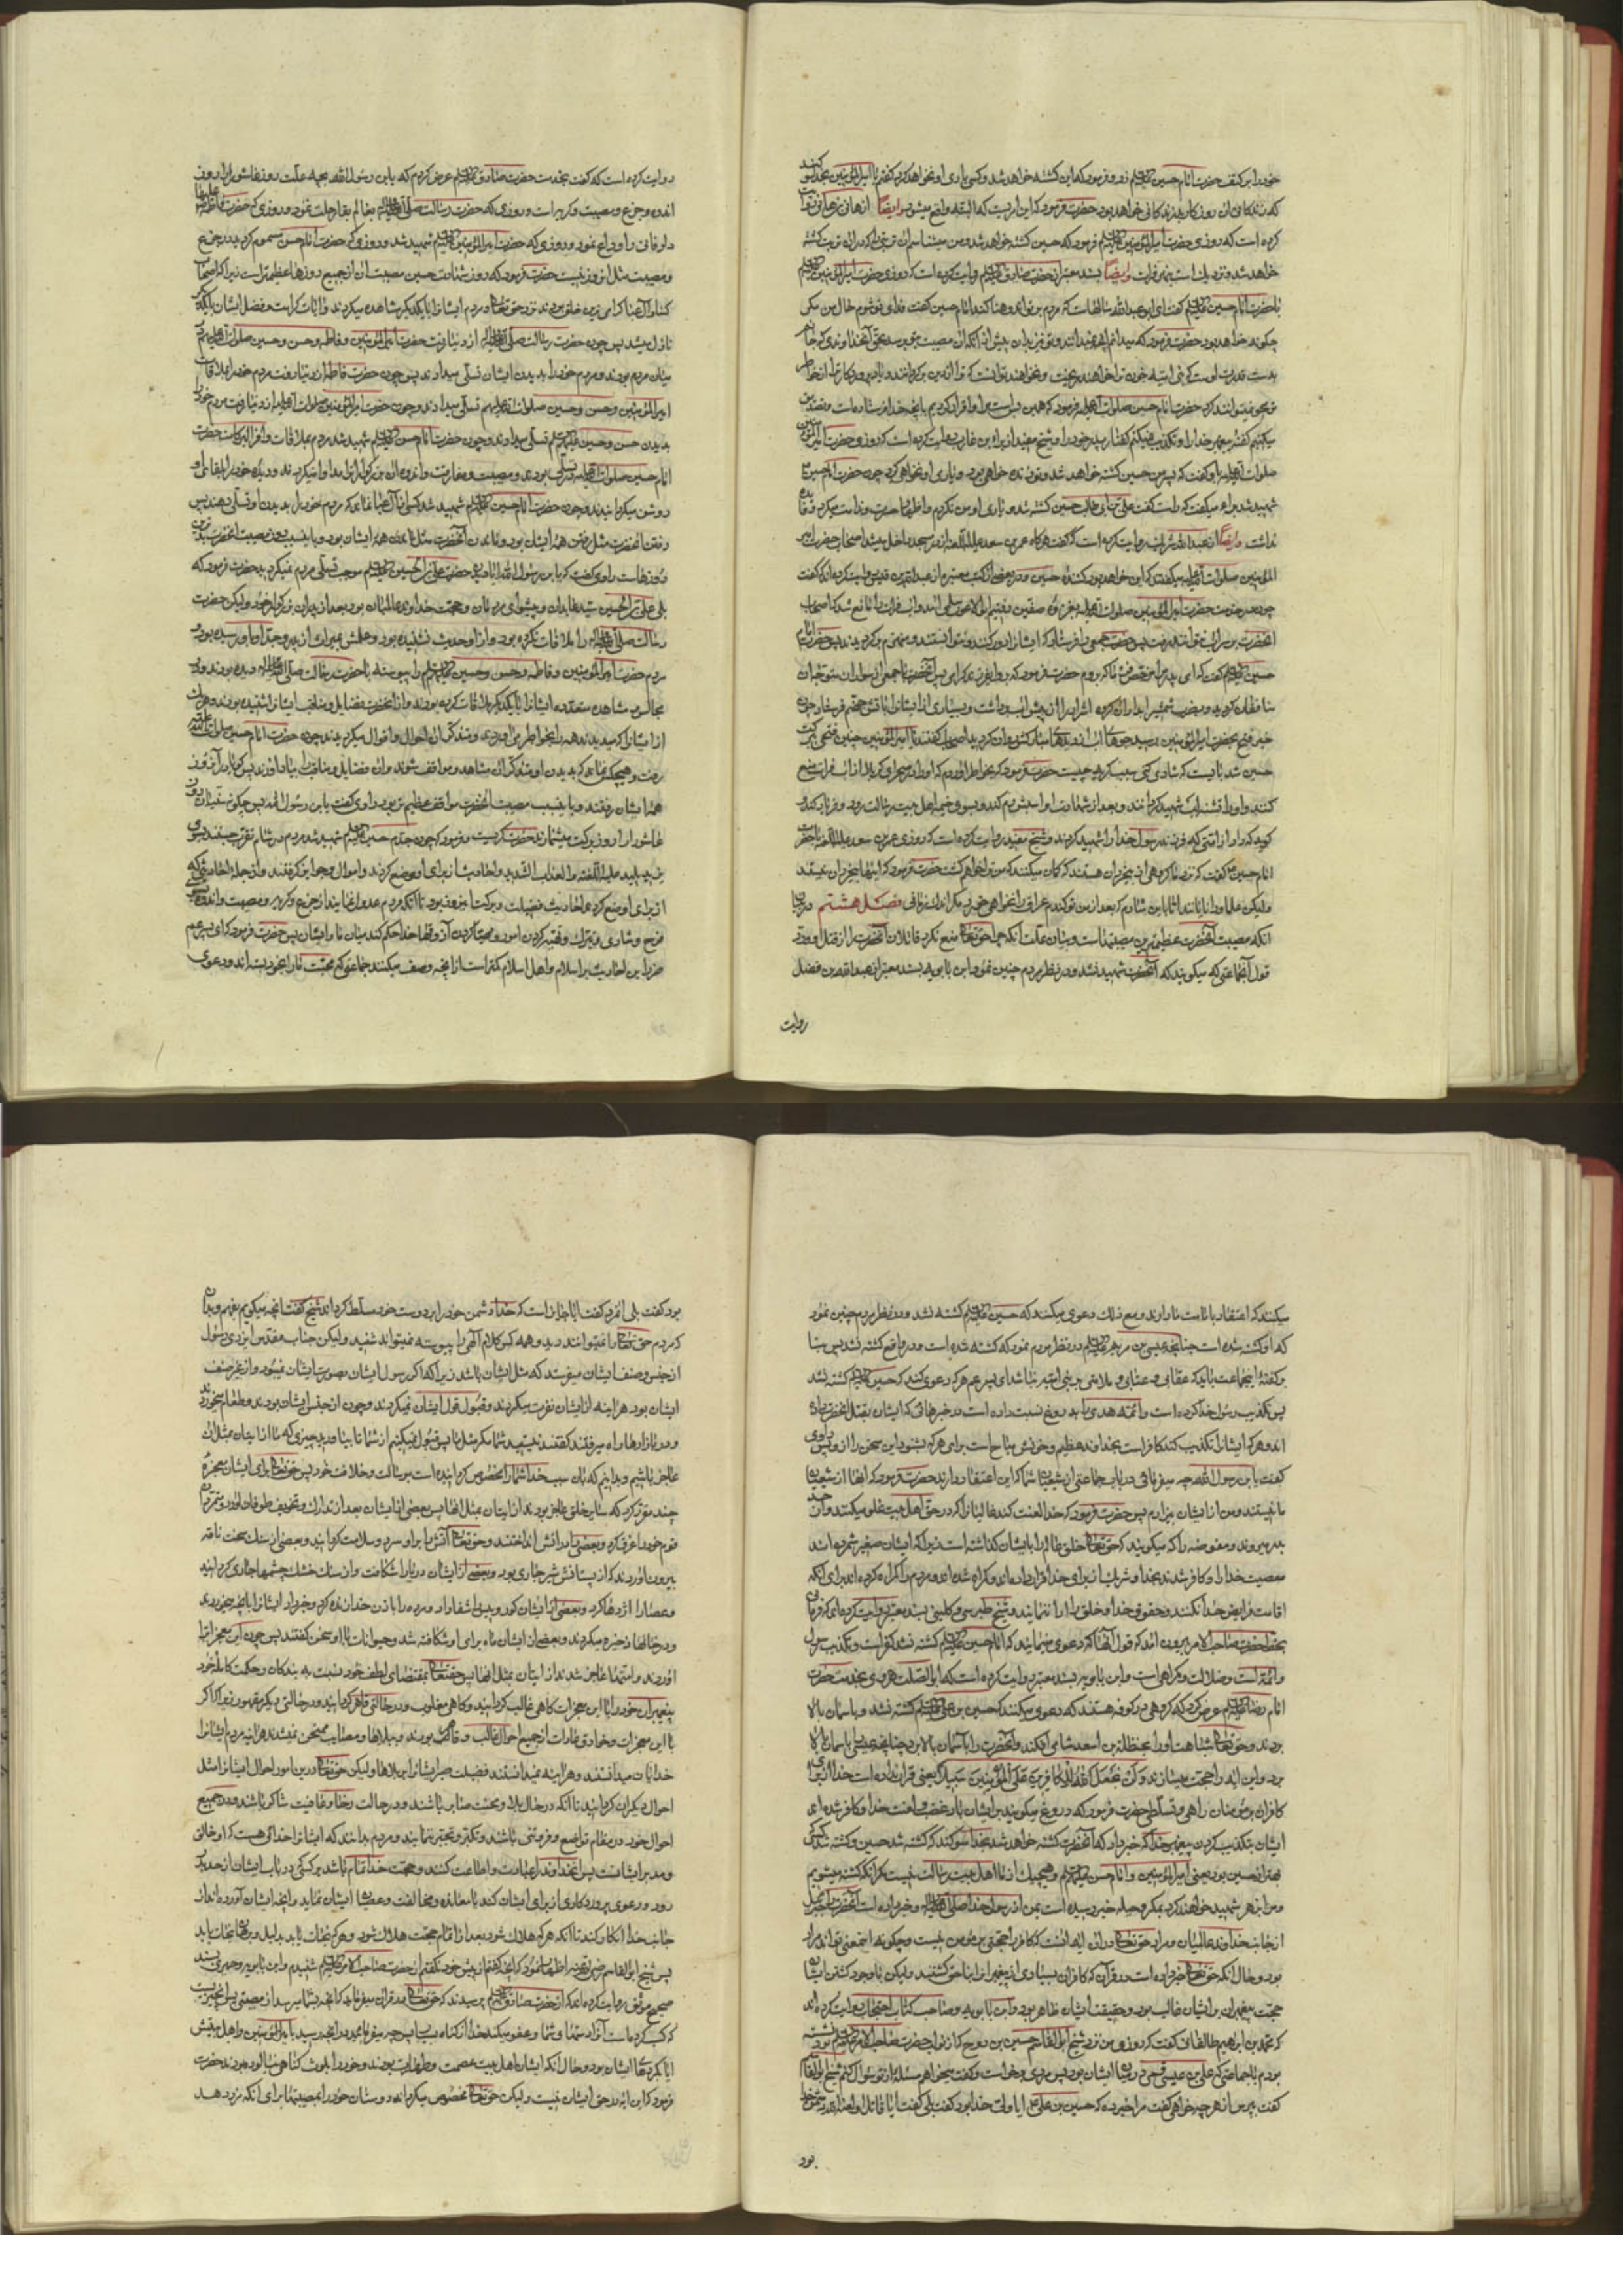 خود را بر کتف حضرت امام حسین علیه السلام زد و فرمود که این کشته خواهد شد و کسی یاری او نخواهد کرد گفتم یا امیرالمؤمنین بخدا سوکند
که زندکانی آن روزکار بد زندکانی خواهد بود حضرت فرمود که این امریست که البته واقع میشود و ایضا از هانی بن هانی روایت
کرده است که روزی حضرت امیرالمؤمنین علیه السلام فرمود که حسین کشته خواهد شد و من میشناسم آن تربتی را که در آن تربت کشته
خواهد شد و نزدیک است بنهر فرات و ایضا بسند معتبر از حضرت صادق علیه السلام روایت کرده است که روزی حضرت امیرالمؤمنین علیه السلام
با حضرت امام حسین علیه السلام گفت ای ابو عبدالله سالهاست که مردم بر تو اندوهناکند امام حسین گفت فدای تو شوم حال من مکر
چکونه خواهد بود حضرت فرمود که میدانم آنچه نمیدانند و تو نیز بدان پیش از آنکه آن مصیبت بتو برسد بحق آنخداوندی که جانم
بدست قدرت اوست که بنی امیه خون ترا خواهند ریخت و نخواهند توانست که ترا از دین برکردانند و یاد پروردکار ترا از خاطر
تو محو نتوانند کرد حضرت امام حسین صلوات الله علیه فرمود که همین بس است مرا و اقرار کردیم بآنچه خدا فرستاده است و تصدیق
میکنیم گفته پیغمبر خدا را و تکذیب نمیکنم گفتار پدر خود را و شیخ مفید از براء بن عازب روایت کرده است که روزی حضرت امیرالمؤمنین
صلوات الله علیه باو گفت که پسر من حسین کشته خواهد شد و تو زنده خواهی بود و یاری او نخواهی کرد چون حضرت امام حسین
شهید شد براء میگفت که راست گفت علی بن ابی طالب حسین کشته شد و یاری او من نکردم و اظهار حسرت و ندامت میکرد و فائده
نداشت و ایضا از عبدالله بن شریک روایت کرده است که گفت هرکاه عمر بن سعد علیه اللعنه از در مسجد داخل میشد اصحاب حضرت امیر
المؤمنین صلوات الله علیه میگفتند که این خواهد بود کشنده حسین و در بعضی از کتب معتبره از عبدالله بن قیس روایت کرده اند که گفت
چون در خدمت حضرت امیرالمؤمنین صلوات الله علیه بغزوه صفین رفتیم ابو الاعور سلمی آمد و آب فرات را مانع شد که اصحاب
آنحضرت بر سر آب توانند رفت پس حضرت جمعی را فرستاد که ایشانرا دور کنند و نتوانستند و منهزم برکردیدند پس حضرت امام
حسین علیه السلام گفت که ای پدر مرا رخصت فرما که بروم حضرت فرمود که برو ای فرزند کرامی پس آنحضرت با جمعی از سواران متوجه آن
منافقان کردید و بضرب شمشیر آبدار آن کروه اشرار را از پیش آب برداشت و بسیاری از ایشانرا بآتش جهنم فرستاد چون
خبر فتح بحضرت امیرالمؤمنین رسید جویهای آب از دیدهای مبارکش روان کردید اصحاب گفتند یا امیرالمؤمنین چنین فتحی ببرکت
حسین شد بایست که شادی کنی سبب کریه چیست حضرت فرمود که بخاطر آوردم که او را در صحرای کربلا از آب فرات منع
کنند و او را تشنه لب شهید کردانند و بعد از شهادت او اسبش رم کند و بسوی خیمه اهل بیت رسالت رود و فریاد کند و
کوید که داد از امتی که فرزند رسول خدا را شهید کردند و شیخ مفید روایت کرده است که روزی عمر بن سعد علیه اللعنه با حضرت
امام حسین گفت که نزد ما کروهی از بیخردان هستند که کمان میکنند که من ترا خواهم کشت حضرت فرمود که اینها بیخردان نیستند
ولیکن علما و دانایانند اما باین شادم که بعد از من کندم عراق را نخواهی خورد مکر اندک زمانی فصل هشتم در بیان
آنکه مصیبت آنحضرت عظیمترین مصیبتهاست و بیان علت آنکه چرا حق تعالی منع نکرد قاتلان آنحضرت را از قتل او و رد
قول آنجماعتی که میکویند که آنحضرت شهید نشد و در نظر مردم چنین نمود ابن بابویه بسند معتبر از عبدالله بن فضل
روایت
روایت کرده است که گفت بخدمت حضرت صادق علیه السلام عرض کردم که یا بن رسول الله بچه علت روز عاشورا روز
اندوه و جزع و مصیبت و کریه است و روزی که حضرت رسالت صلی الله علیه و آله بعالم بقا رحلت نمود و روزی که حضرت فاطمه علیها
دار فانی را وداع نمود و روزی که حضرت امیرالمؤمنین علیه السلام شهید شد و روزی که حضرت امام حسن مسموم کردید در جزع
و مصیبت مثل آنروز نیست حضرت فرمود که روز شهادت حسین مصیبت آن از جمیع روزها عظیمتر است زیرا که اصحاب
کسا و آل عبا کرامی ترین خلق بودند نزد حق تعالی و مردم ایشانرا با یکدیکر مشاهده میکردند و آیات کرامت و فضل ایشان با یکدیکر
نازل میشد پس چون حضرت رسالت صلی الله علیه و آله از دنیا رفت حضرت امیرالمؤمنین و فاطمه و حسن و حسین صلوات الله علیهم در
میان مردم بودند و مردم خود را بدیدن ایشان تسلی میدادند پس چون حضرت فاطمه از دنیا رفت مردم خود را بملاقات
امیرالمؤمنین و حسن و حسین صلوات الله علیهم تسلی میدادند و چون حضرت امیرالمؤمنین صلوات الله علیه از دنیا رفت مردم خود را
بدیدن حسن و حسین علیهم السلام تسلی میدادند و چون حضرت امام حسن علیه السلام شهید شد مردم بملاقات وافر البرکات حضرت
امام حسین صلوات الله علیه متسلی بودند و مصیبت و مفارقت و اندوه آن بزرکواران را مداوا میکردند و دیده خود را بلقای او
روشن میکردانیدند و چون حضرت امام حسین علیه السلام شهید شد کسی از آل عبا نماند که مردم خود را بدیدن او تسلی دهند پس
رفتن آنحضرت مثل رفتن همه ایشان بود و ماندن آنحضرت مثل ماندن همه ایشان بود و باین سبب روز مصیبت آنحضرت بدترین
روزهاست راوی گفت که یا بن رسول الله آیا دیدن حضرت علی بن الحسین علیه السلام موجب تسلی مردم نمیکردید حضرت فرمود که
بلی علی بن الحسین سید عابدان و پیشوای مردمان و حجت خدا بر عالمیان بود بعد از پدران بزرکوار خود و لیکن حضرت
رسالت صلی الله علیه و آله را ملاقات نکرده بود و از او حدیث نشنیده بود و علمش بمیراث از پدر و جد او باو رسیده بود و
مردم حضرت امیرالمؤمنین و فاطمه و حسن و حسین علیهم السلام را پیوسته با حضرت رسالت صلی الله علیه و آله دیده بودند و در
مجالس و مشاهده متعدده ایشانرا با یکدیکر ملاقات کرده بودند و از آنحضرت فضایل و مناقب ایشانرا شنیده بودند و هریک
از ایشانرا که میدیدند همه را بخاطر می آوردند و متذکر آن احوال و اقوال میکردیدند چون حضرت امام حسین صلوات الله علیه
رفت و هیچکس نماند که بدیدن او متذکر آن مشاهد و مواقف شوند و آن فضایل و مناقب را بیاد آورند پس کویا در آنروز
همه ایشان رفتند و باین سبب مصیبت آنحضرت مواقف عظیم تر بود راوی گفت یا بن رسول الله پس چکونه سنیان روز
عاشورا را روز برکت میشمارند حضرت کریست و فرمود که چون جدم حسین علیه السلام شهید شد مردم در شام تقرب جستند بسوی
یزید پلید علیه اللعنه و العذاب الشدید و احادیث از برای او وضع کردند و اموال و جوایز کرفتند و از جمله احادیثی که
از برای او وضع کردند احادیث فضیلت و برکت اینروز بود تا آنکه مردم عدول نمایند از جزع و کریه و مصیبت و اندوه بسوی
فرح و شادی و تبرک و تهنیه کردن امور و مهیا کردن آذوقها خدا حکم کند میان ما و ایشان پس حضرت فرمود که ای پسر عم
ضرر این احادیث بر اسلام و اهل اسلام کمتر است از آنچه وصف میکنند جماعتی که محبت ما را بخود بسته اند و دعوی
میکنند که اعتقاد بامامت ما دارند و مع ذلک دعوی میکنند که حسین علیه السلام کشته نشد و در نظر مردم چنین نمود
که او کشته شده است چنانچه عیسی بن مریم علیه السلام در نظر مردم نمود که کشته شده است و در واقع کشته نشد پس بنا
بر کفته اینجماعت باید که عقابی و عتابی و ملامتی بر بنی امیه نباشد ای پسر عم هر که دعوی کند که حسین علیه السلام کشته نشد
پس تکذیب رسول خدا کرده است و ائمه هدی را بدروغ نسبت داده است در خبرهائی که ایشان بقتل آنحضرت داده
اند و هر که ایشانرا تکذیب کند کافر است بخداوند عظیم و خونش مباح است برای هر که بشنود این سخن را از و پس راوی
گفت یا بن رسول الله چه میفرمائی در باب جماعتی از شیعیان شما که این اعتقاد دارند حضرت فرمود که آنها از شیعیان
ما نیستند و من از ایشان بیزارم پس حضرت فرمود که خدا لعنت کند غالیانرا که در حق اهل بیت غلو میکنند و از حد
بدر میروند و مفوضه را که میکویند که حق تعالی خلق عالم را بایشان کذاشته است زیرا که ایشان صغیر شمرده اند
معصیت خدا را و کافر شدند بخدا و شریک از برای خدا قرار داده اند و کمراه شده اند و مردم را کمراه کرده اند برای آنکه
اقامت فرایض خدا نکنند و حقوق خدا و خلق را ادا ننمایند و شیخ طبرسی و کلینی بسند معتبر روایت کرده اند که فرمانی
بخط حضرت صاحب الامر بیرون آمد که قول آنها که دعوی مینمایند که امام حسین علیه السلام کشته نشد کفر است و تکذیب رسول
و ائمه است و ضلالت و کمراهی است و ابن بابویه بسند معتبر روایت کرده است که ابو الصلت هروی بخدمت حضرت
امام رضا علیه السلام عرض کرد که کروهی در کوفه هستند که دعوی میکنند که حسین بن علی علیه السلام کشته نشد و باسمان بالا
بردند و حق تعالی شباهت او را بحنظله بن اسعد شامی افکند و آنحضرت را بآسمان بالا برد چنانچه عیسی را باسمان بالا
برد و این آیه را حجت میسازند و لن یجعل الله للکافرین علی المؤمنین سبیلا یعنی قرار نداده است خدا از برای
کافران بر مؤمنان راهی و تسلطی حضرت فرمود که دروغ میکویند بر ایشان باد غضب و لعنت خدا و کافر شده اند
ایشان بتکذیب کردن پیغمبر خدا که خبر داد که آنحضرت کشته خواهد شد بخدا سوکند که کشته شد حسین و کشته شد کسیکه
بهتر از حسین بود یعنی امیرالمؤمنین و امام حسن علیهما السلام و هیچیک از ما اهل بیت رسالت نیست مکر آنکه کشته میشویم
و مرا بزهر شهید خواهند کرد بمکر و حیله خبر رسیده است بمن از رسول خدا صلی الله علیه و آله و خبر داده است آنحضرت را جبرئیل
از جانب خداوند عالمیان و مراد حق تعالی در این آیه آنست که کافر را حجتی بر مؤمن نیست و چکونه آنمعنی تواند مراد
بود و حال آنکه حق تعالی خبر داده است در قرآن که کافران بسیاری از پیغمبران را بناحق کشتند و لیکن با وجود کشتن ایشان
حجت پیغمبران بر ایشان غالب بود و حقیقت ایشان ظاهر بود و ابن بابویه و صاحب کتاب احتجاج روایت کرده اند
که محمد بن ابراهیم طالقانی گفت که روزی من نزد شیخ ابو القاسم حسین بن روح که از نواب حضرت صاحب الامر علیه السلام بود نشسته
بودم با جماعتی که علی بن عیسی قصری در میان ایشان بود پس مردی برخواست و گفت میخواهم مسئله از تو سؤال کنم شیخ ابو القاسم
گفت بپرس از هر چه خواهی گفت مرا خبر ده که حسین بن علی آیا ولی خدا بود گفت بلی گفت آیا قاتل او لعنه الله دشمن خدا
بود
بود گفت بلی آنمرد گفت آیا جایز است که خدا دشمن خود را بر دوست خود مسلط کرداند شیخ گفت آنچه میکویم بفهم و بدان
که مردم حق تعالی را نمیتوانند دید و همه کس کلام آلهی را پیوسته نمیتواند شنید و لیکن جناب مقدس ایزدی رسول
از جنس و صنف ایشان میفرستد که مثل ایشان باشد زیرا که اکر رسول ایشان بصورت ایشان نمیبود و از غیر صنف
ایشان بود هراینه از ایشان نفرت میکردند و قبول قول ایشان نمیکردند و چون از جنس ایشان بودند و طعام میخوردند
و در بازارها راه میرفتند گفتند نیستید شما مکر مثل ما پس قبول نمیکنیم از شما تا بیاورید چیزی که ما از اتیان بمثل آن
عاجز باشیم و بدانیم که باین سبب خدا شما را مخصوص کردانیده است برسالت و خلافت خود پس حق تعالی برای ایشان معجزه
چند مقرر کرد که سایر خلق عاجز بودند از اتیان بمثل آنها پس بعضی از ایشان بعد از تدارک و تخویف طوفان آورد و متمردان
قوم خود را غرق کرد و بعضی را در آتش انداختند و حق تعالی آتش را بر او سرد و سلامت کردانید و بعضی از سنک سخت ناقه
بیرون آوردند که از پستانش شیر جاری بود و بعضی از ایشان دریا را شکافت و از سنک خشک چشمها جاری کردانید
و عصا را اژدها کرد و بعضی از ایشان کور و پیس را شفا داد و مرده را باذن خدا زنده کرد و خبر داد ایشانرا بآنچه میخوردند
و در خانها ذخیره میکردند و بعضی از ایشان ماه برای او شکافته شد و حیوانات با او سخن گفتند پس چون این معجزات را
آوردند و امتها عاجز شدند از اتیان بمثل آنها پس حق تعالی بمقتضای لطف خود نسبت به بندکان و حکمت کامله خود
پیغمبران خود را با این معجزات کاهی غالب کردانید و کاهی مغلوب و در حالتی قاهر کردانید و در حالتی دیکر مقهور زیرا که اکر
با این معجزات و خوارق عادات از جمیع احوال غالب و قاهر بودند و ببلاها و مصایب ممتحن نمیشدند هراینه مردم ایشانرا
خدایان میدانستند و هراینه نمیدانستند فضیلت صبر ایشانرا بر بلاها و لیکن حق تعالی در این امور احوال ایشانرا مثل
احوال دیکران کردانید تا آنکه در حال بلا و محنت صابر باشند و در حالت رخا و عافیت شاکر باشند و در جمیع
احوال خود در مقام تواضع و فروتنی باشند و تکبر و تجبر ننمایند و مردم بدانند که ایشانرا خدائی هست که او خالق
و مدبر ایشانست پس آنخداوند را عبادت و اطاعت کنند و حجت خدا تمام باشد بر کسی که در باب ایشان از حد بدر
رود و دعوی پروردکاری از برای ایشان کند یا معانده و مخالفت و عصیان ایشان نماید و آنچه ایشان آورده اند از
جانب خدا انکار کند تا آنکه هر که هلاک شود بعد از اتمام حجت هلاک شود و هر که نجات یابد بدلیل و برهان نجات یابد
پس شیخ ابو القاسم ... اظهار نمود که آنچه گفتم از پیش خود نکفتم از حضرت صاحب الامر علیه السلام شنیدم و ابن بابویه و حمیری بسند
صحیح موثق روایت کرده اند که از حضرت صادق علیه السلام پرسیدند که حق تعالی در قرآن میفرماید که آنچه بشما میرسد از مصیبتی پس بآنچیزیست
که کسب کرده است آنرا دستهای شما و عفو میکند خدا از کناه بسیار پس چه میفرمائید در آنچه رسید بامیرالمؤمنین و اهل بیتش
آیا بکردهای ایشان بود و حال آنکه ایشان اهل بیت عصمت و طهارت بودند و خود را بلوث کناهی نیالوده بودند حضرت
فرمود که این آیه در حق ایشان نیست و لیکن حق تعالی مخصوص میکرداند دوستان خود را بمصیبتها برای آنکه مزد دهد